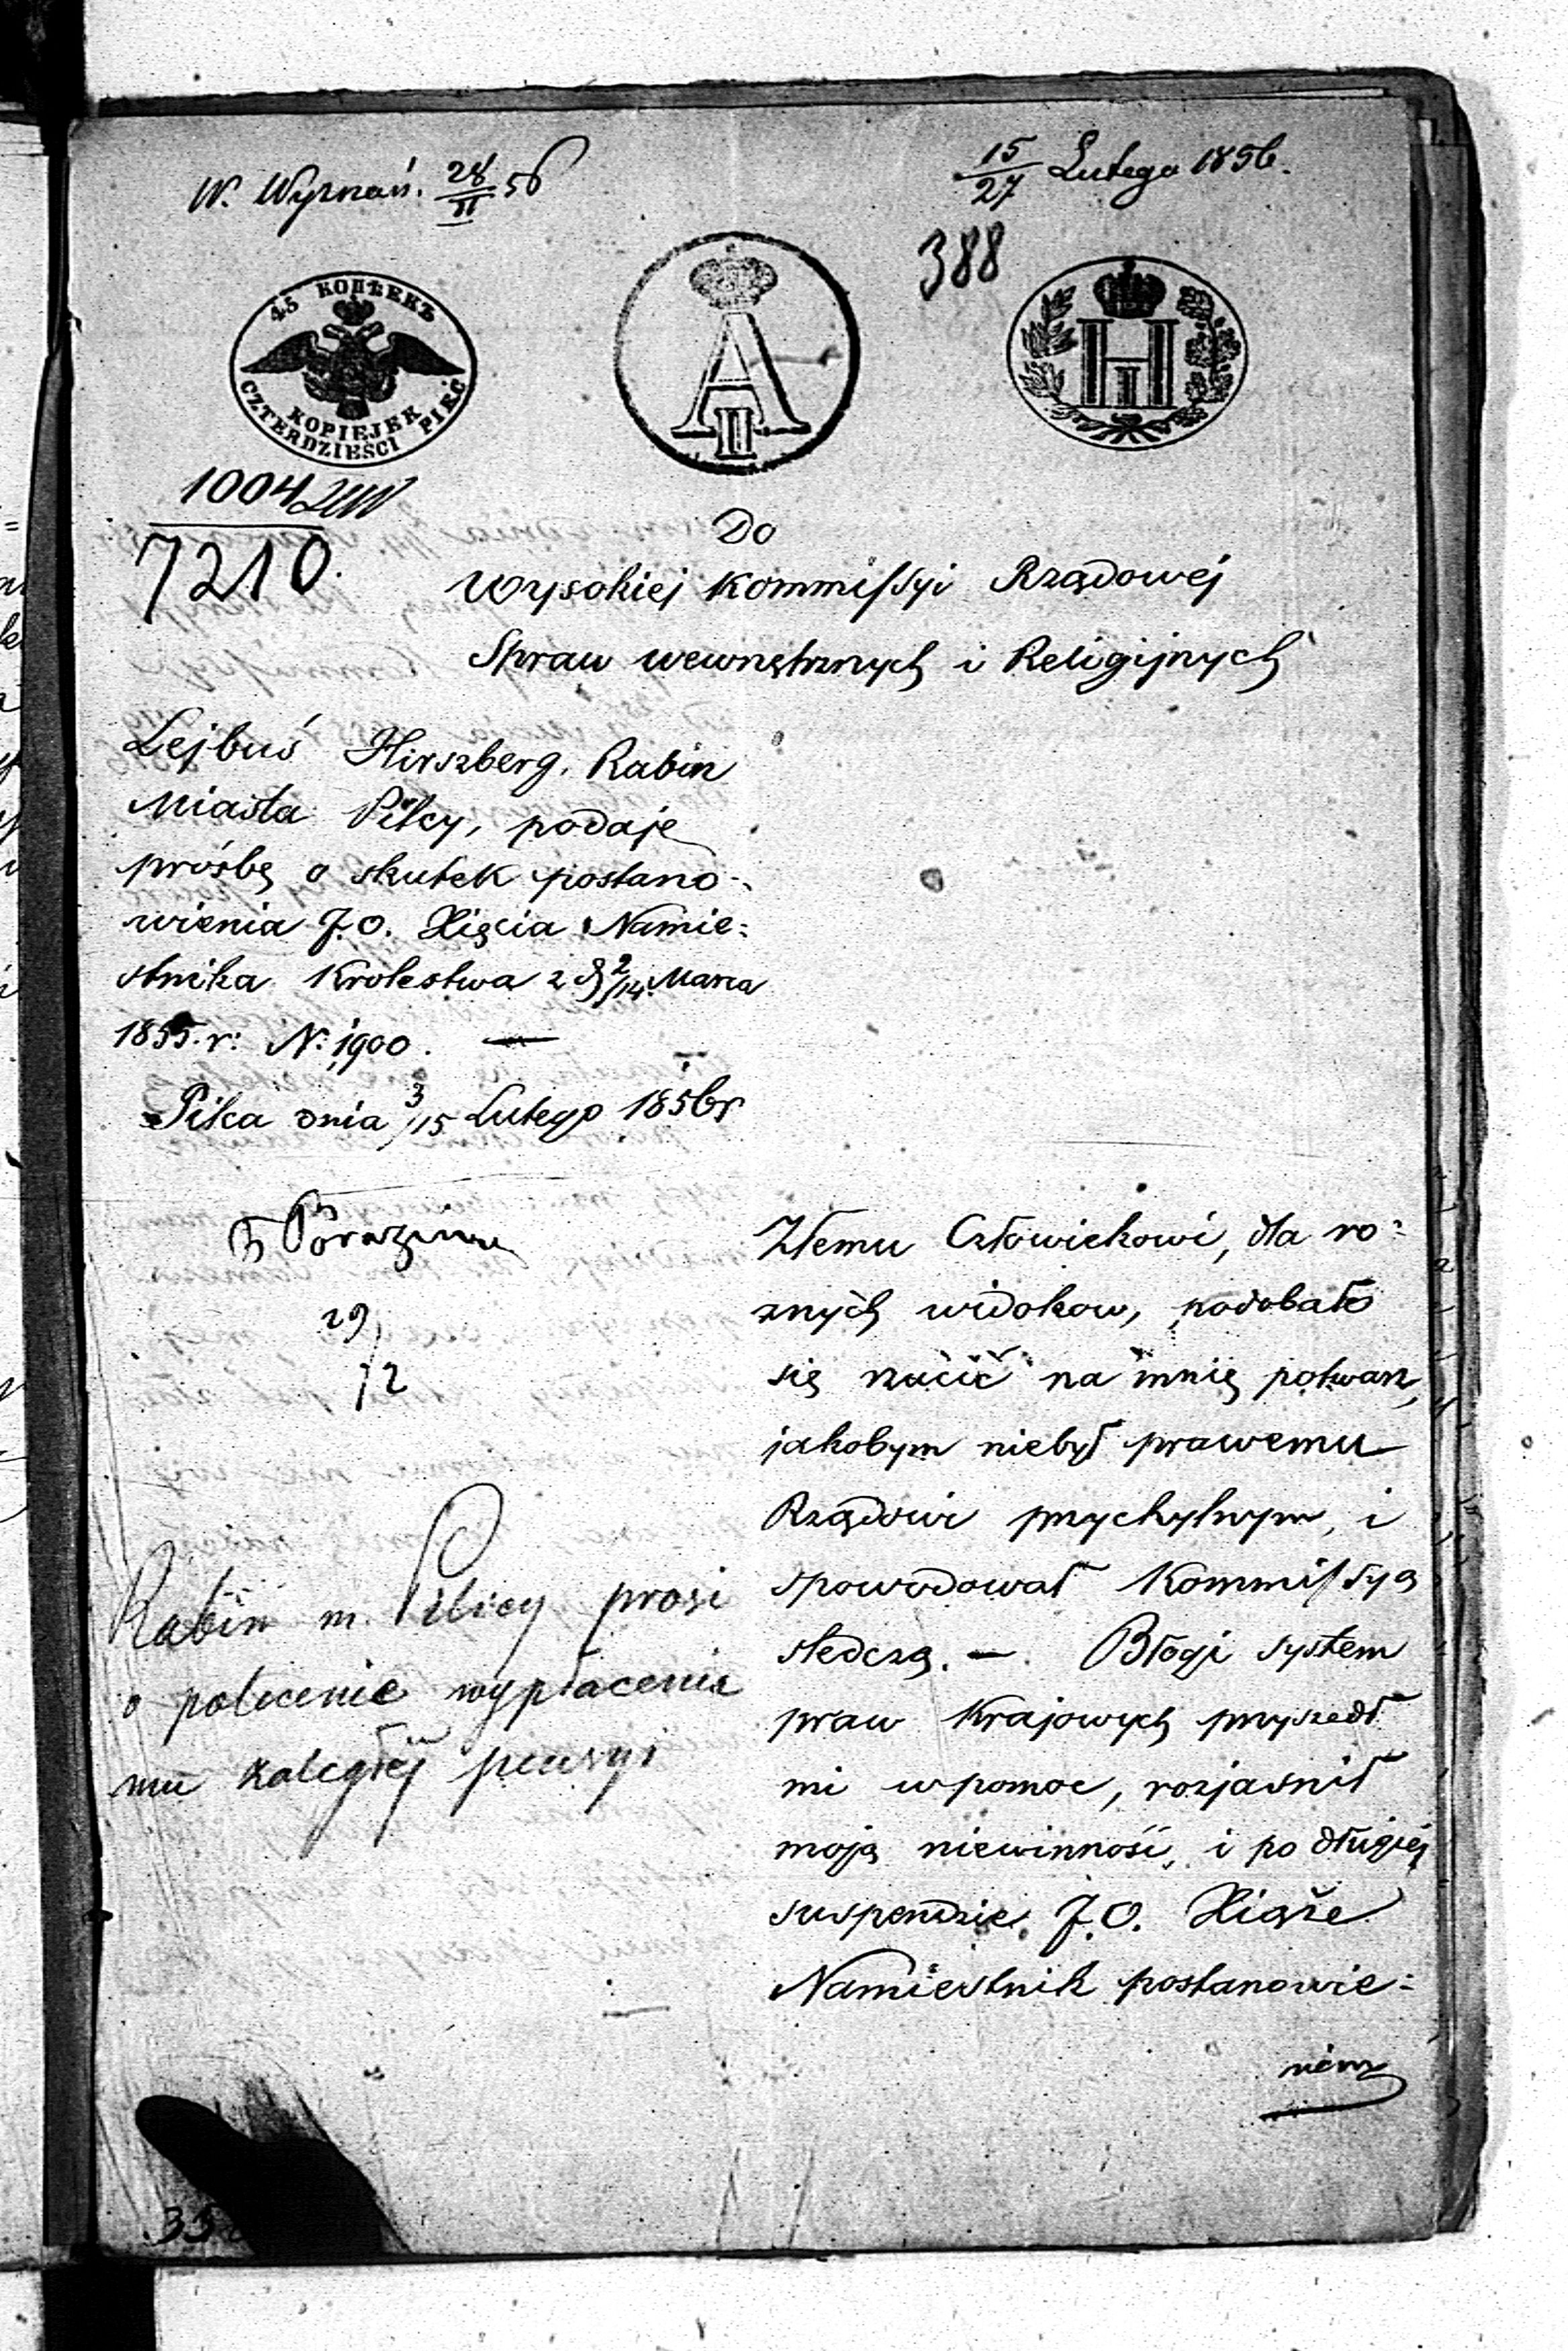 W. Wyznań. 28/II 56
15/27 Lutego 1856.
388
45 КОПѢЕКЪ
KOPIEJEK
CZTERDZIEŚCI PIEĆ
A II
H I
1004
7210.
Do
Wysokiej Kommissyi Rządowej
Spraw wewnętrznych i Religijnych
Lejbuś Hirszberg, Rabin
Miasta Pilcy, podaje
prośbę o skutek postano-
wienia J.O. Xięcia Namie-
stnika Krolestwa z d 2/14 Marca
1855. r: N: 1900. —
Pilca dnia 3/15 Lutego 1856 r
29/2
Rabin m. Pilicy prosi
o polecenie wypłacenia
mu zaległéj pensyi
Złemu Człowiekowi, dla ro-
znych widokow, podobało
się rzucić na mnię potwarz,
jakobym niebył prawemu
Rządowi przychylnym, i
spowodował Kommissyą
sledczą. —. Błogi system
praw Krajowych przyszedł
mi w pomoc, rozjasnił
moją niewinność, i po długiej
suspendzie J.O. Xiąże
Namiestnik postanowie-
niem